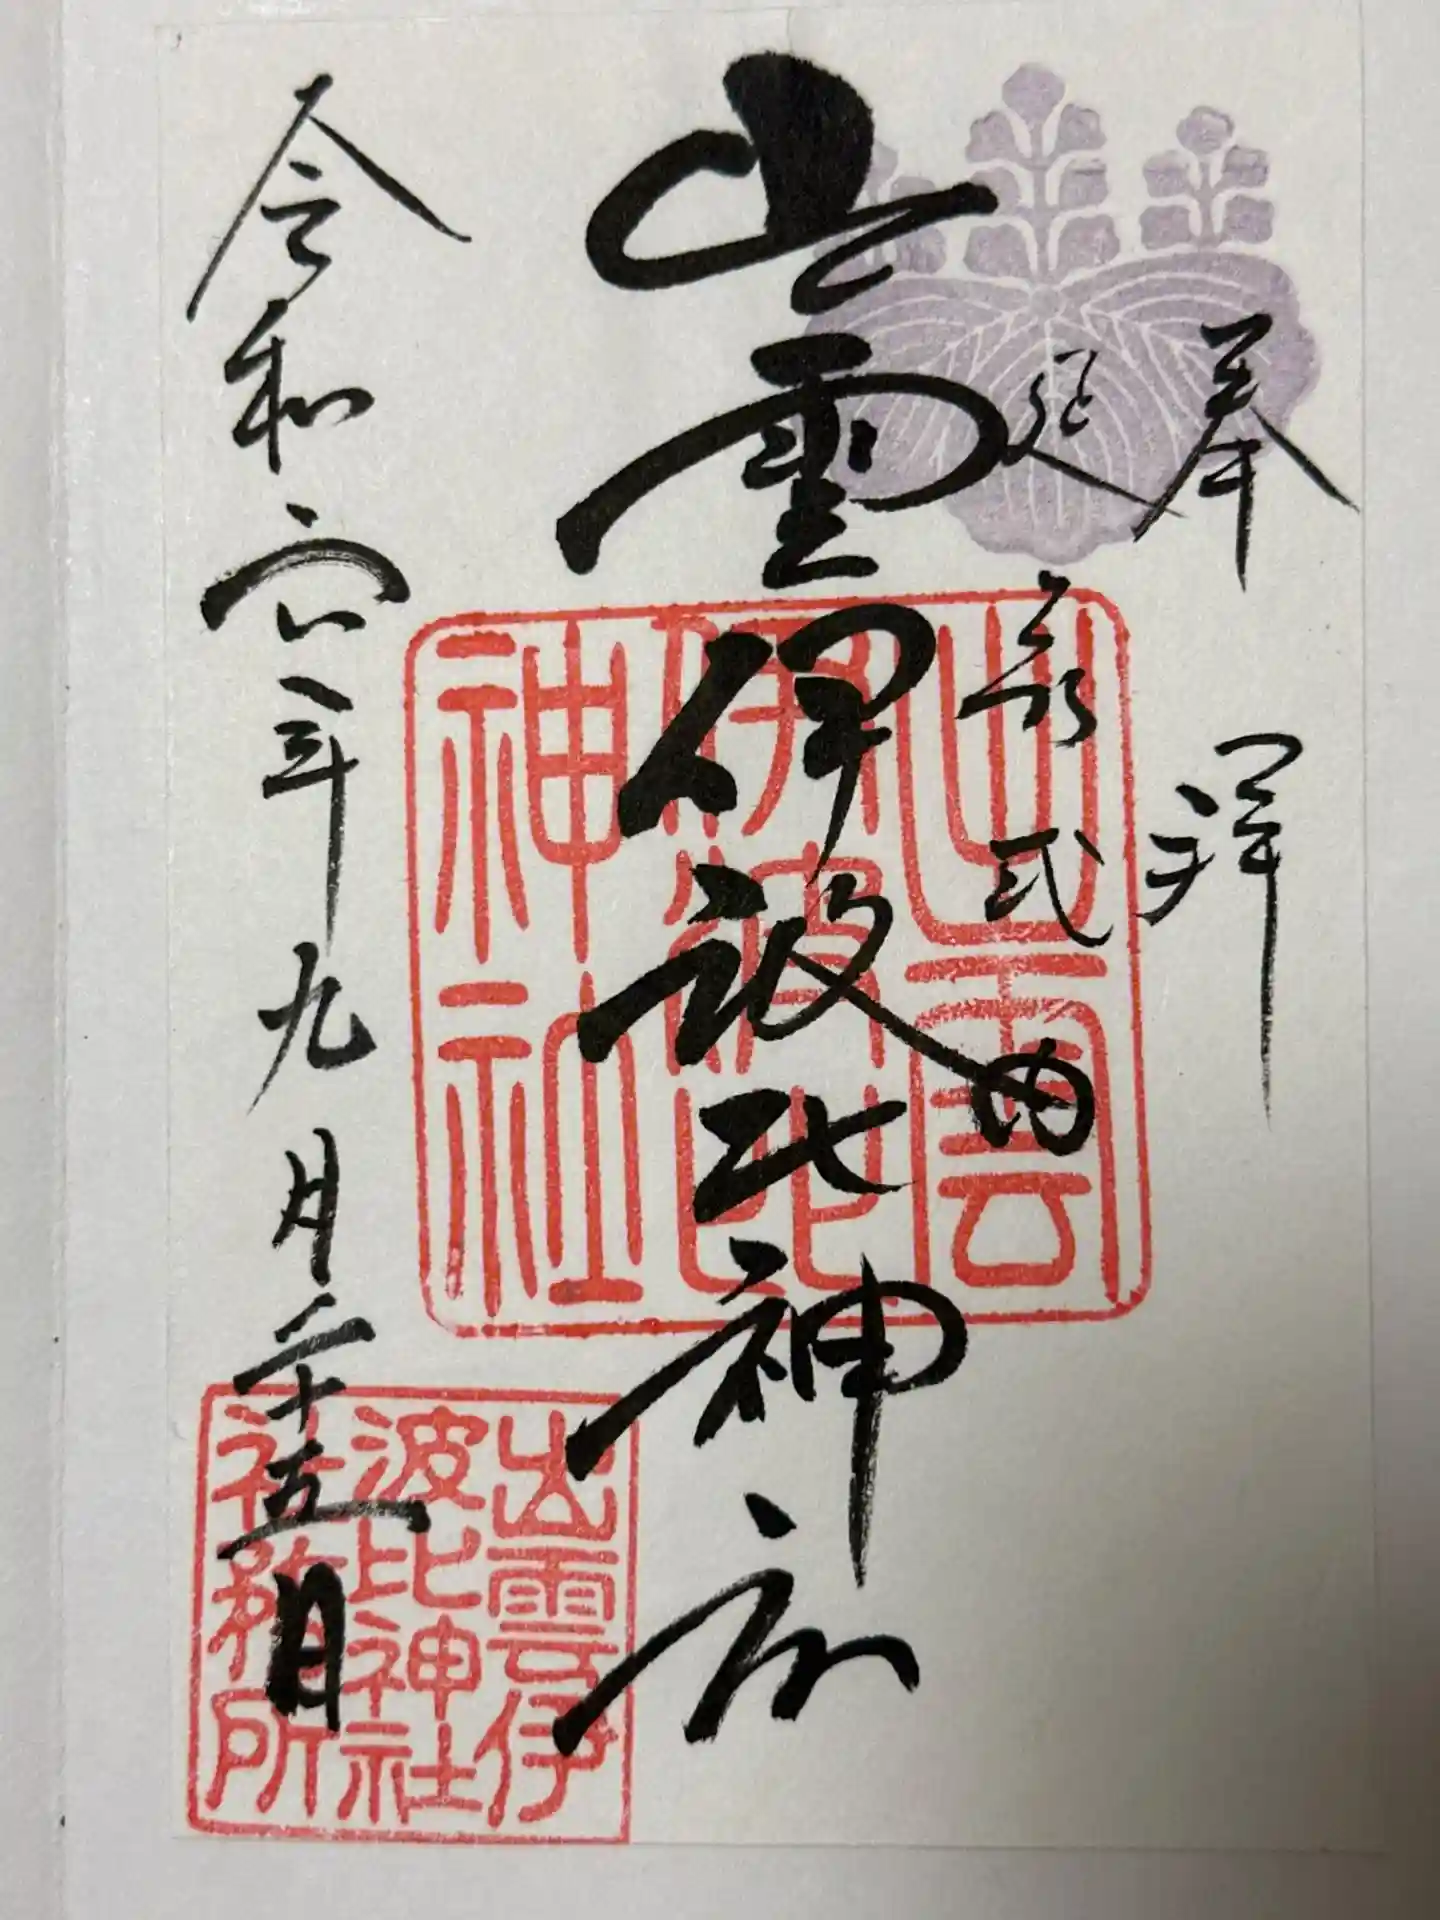 奉拝
延喜式内
出雲伊波比神社
令和六年九月二十五日
出雲
伊波比
神社
出雲伊
波比神社
社務所